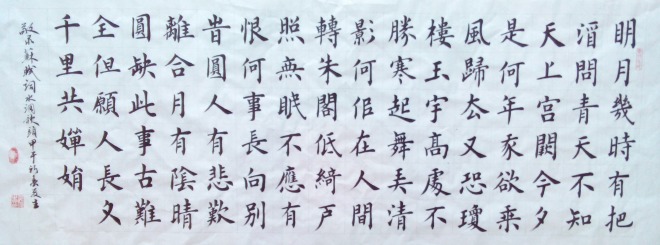 明月幾時有把
酒問青天不知
天上宮闕今夕
是何年我欲乘
風歸去又恐瓊
樓玉宇高處不
勝寒起舞弄清
影何似在人間
轉朱閣低綺戶
照無眠不應有
恨何事長向別
時圓人有悲歡
離合月有陰晴
圓缺此事古難
全但願人長久
千里共嬋娟
敬录蘇軾詞水調歌頭甲午